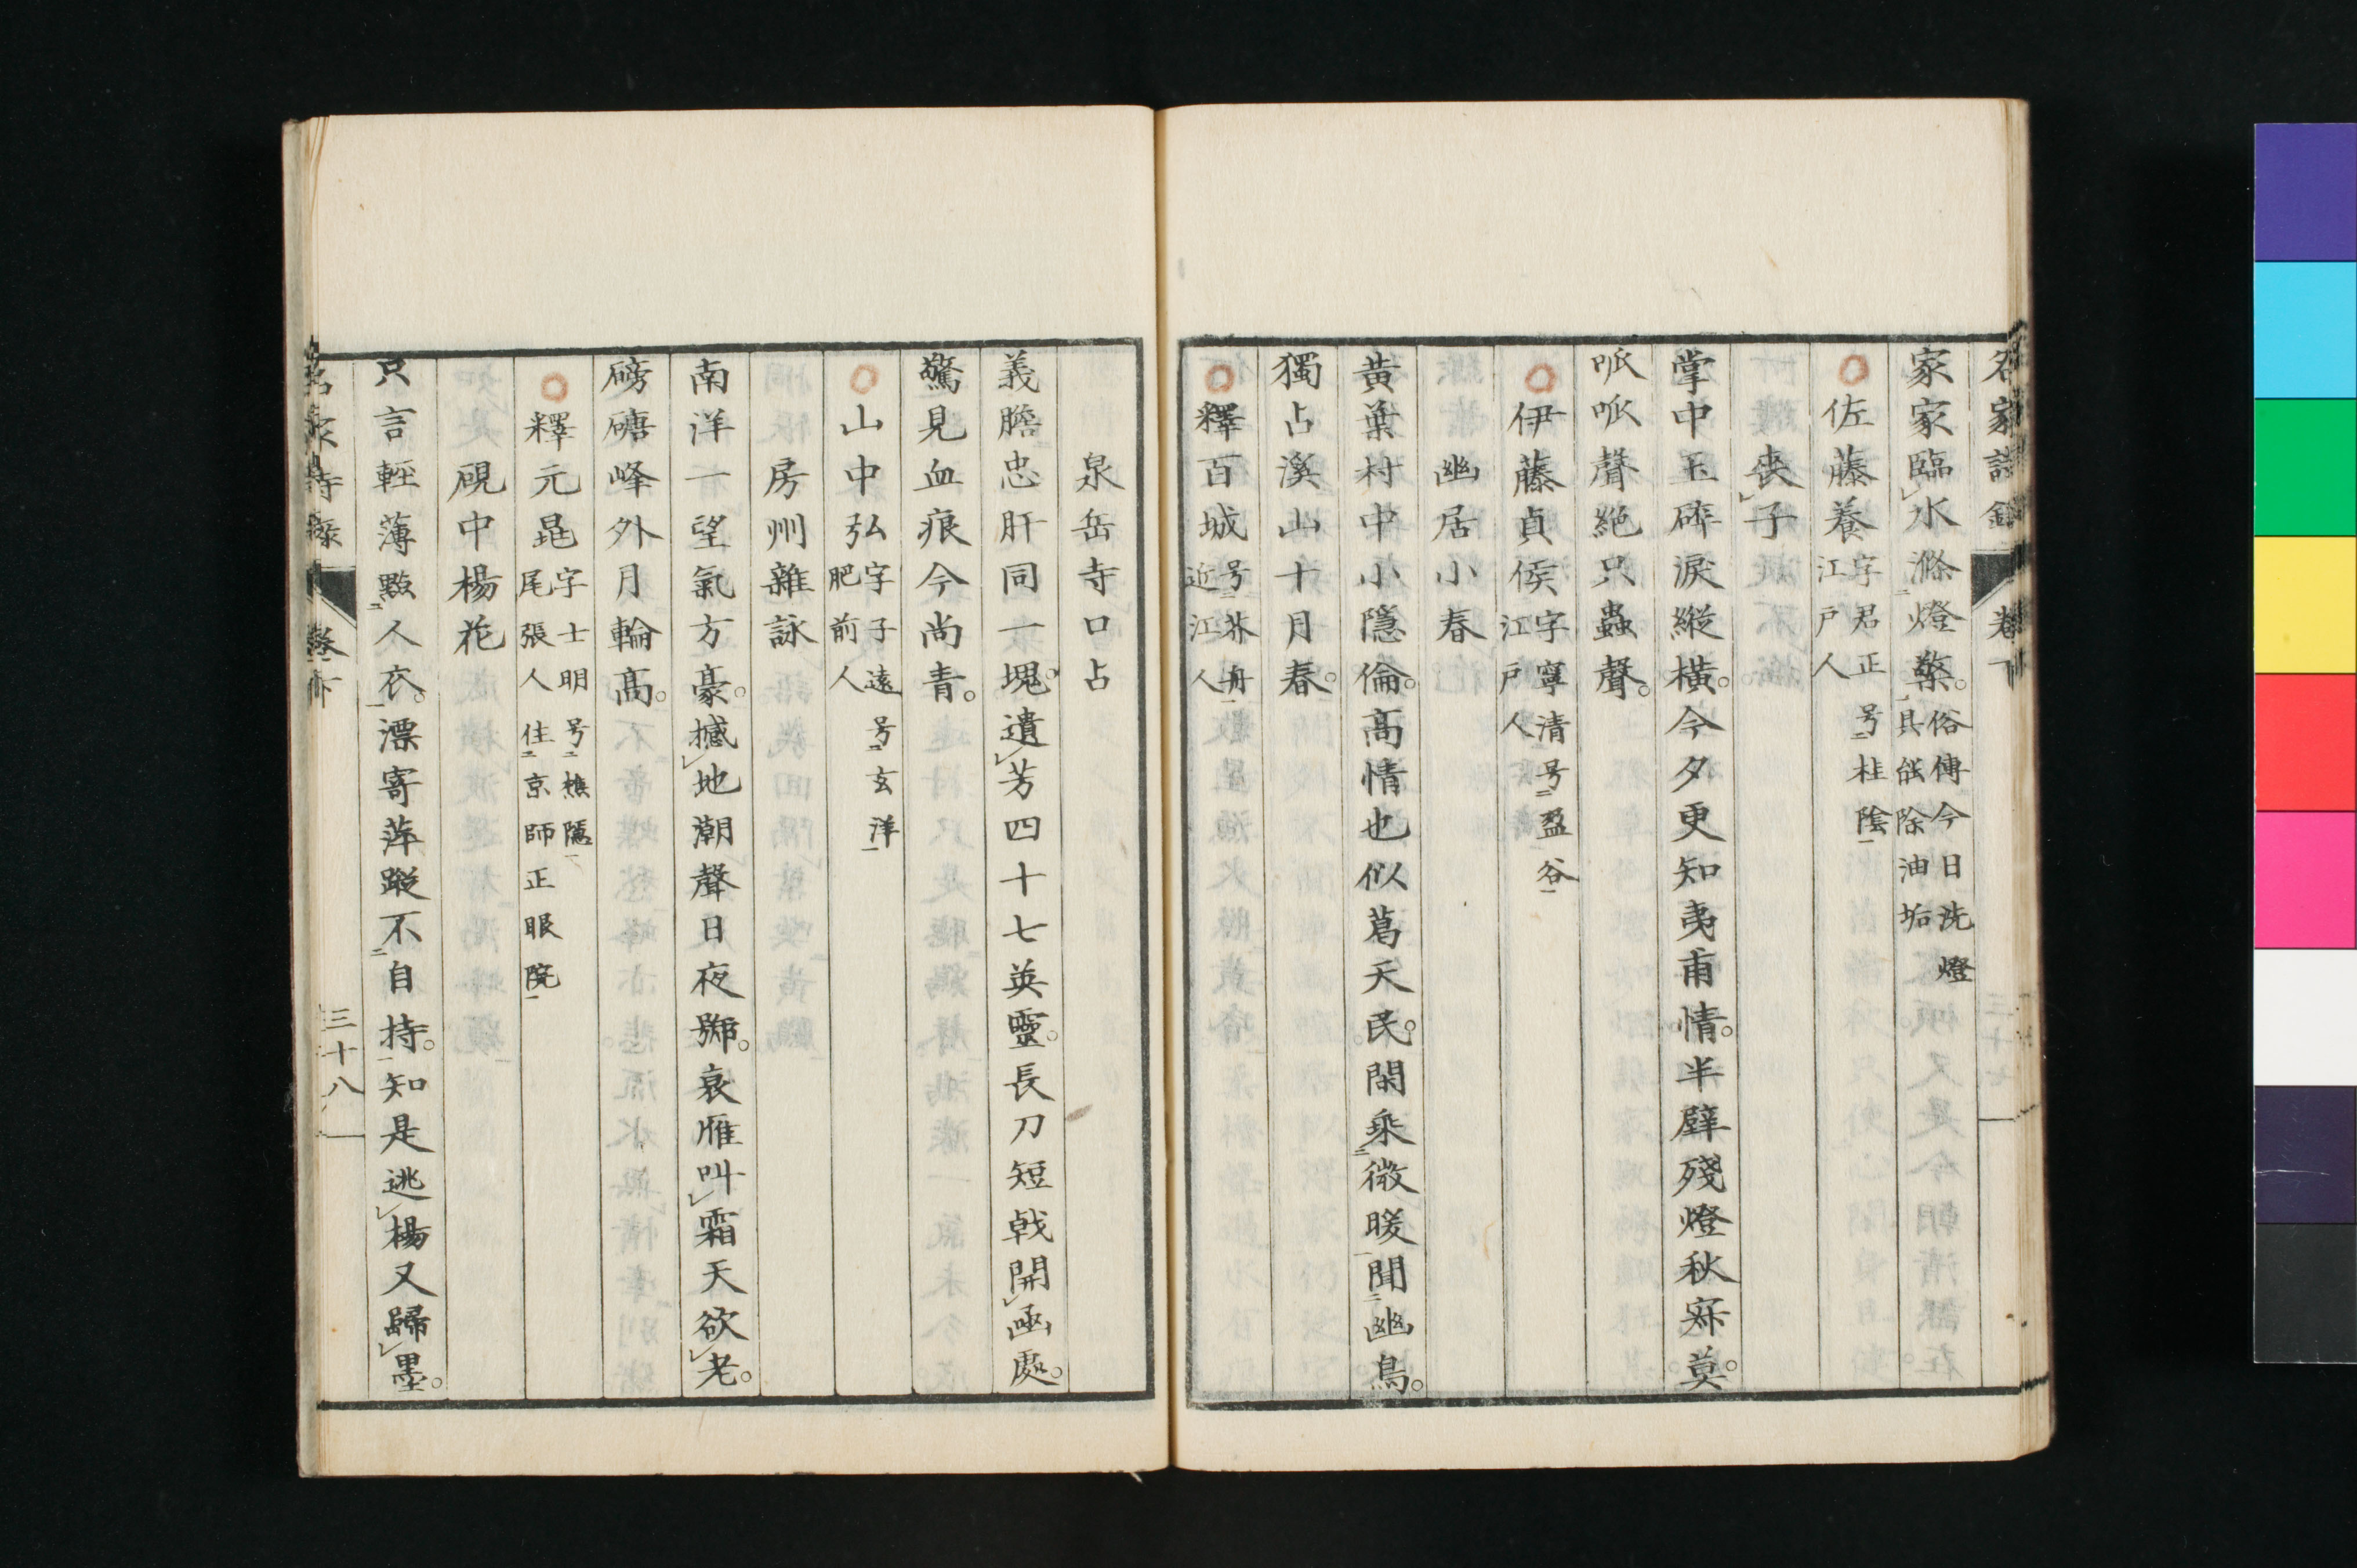 名家詩録 卷下
家家臨水滌燈檠。俗傳今日洗燈具能除油垢
佐藤養字君正号桂陰江戸人
喪子
掌中玉碎淚縱橫。今夕更知夷甫情。半壁殘燈秋寂莫。
呱呱聲絕只蟲聲。
伊藤貞侯字寧清号盈谷江戸人
幽居小春
黃葉村中小隱倫。高情也似葛天民。閑乘微暖聞幽鳥。
獨占溪山十月春。
釋百城号芥舟近江人
泉岳寺口占
義膽忠肝同一塊。遺芳四十七英靈。長刀短戟開函處。
驚見血痕今尚青。
山中弘字子遠号玄洋肥前人
房州雜詠
南洋一望氣方豪。撼地潮聲日夜號。哀雁叫霜天欲老。
磅礴峰外月輪高。
釋元晁字士明号樵隱尾張人住京師正眼院
硯中楊花
只言輕薄點人衣。漂寄萍蹤不自持。知是逃楊又歸墨。
名家詩録 卷下 三十八